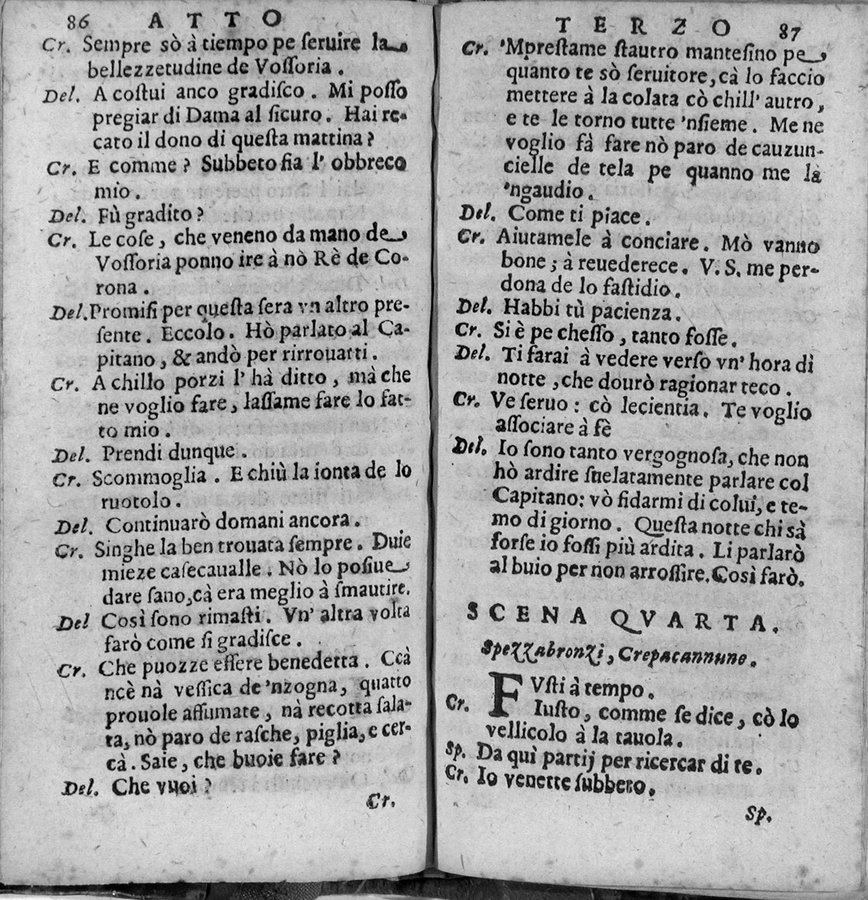 86 ATTO
Cr. Sempre sò à tiempo pe ſeruire la
bellezzetudine de Voſſoria.
Del. A coſtui anco gradiſco. Mi poſſo
pregiar di Dama al ſicuro. Hai re-
cato il dono di queſta mattina?
Cr. E comme? Subbeto fia l' obbreco
mio.
Del. Fù gradito?
Cr. Le coſe, che veneno da mano de
Voſſoria ponno ire à nò Rè de Co-
rona.
Del. Promiſi per queſta ſera vn altro pre-
ſente. Eccolo. Hò parlato al Ca-
pitano, & andò per rirrouarti.
Cr. A chillo porzi l' hà ditto, mà che
ne voglio fare, laſſame fare lo fat-
to mio.
Del. Prendi dunque.
Cr. Scommoglia. E chiù la ionta de lo
ruotolo.
Del. Continuarò domani ancora.
Cr. Singhe la ben trouata ſempre. Duie
mieze caſecaualle. Nò lo poſſiue
dare ſano, cà era meglio à ſmautire.
Del Così ſono rimaſti. Vn' altra volta
farò come ſi gradiſce.
Cr. Che puozze eſſere benedetta. Ccà
ncè nà veſſica de 'nzogna, quatto
prouole aſſumate, nà recotta ſala-
ta, nò paro de raſche, piglia, e cer-
cà. Saie, che buoie fare?
Del. Che vuoi?
Cr.
TERZO 87
Cr. 'Mpreſtame ſtautro manteſino pe
quanto te sò ſeruitore, cà lo faccio
mettere à la colata cò chill' autro,
e te le torno tutte 'nſieme. Me ne
voglio fà fare nò paro de cauzun-
cielle de tela pe quanno me là
'ngaudio.
Del. Come ti piace.
Cr. Aiutamele à conciare. Mò vanno
bone; à reuederece. V. S. me per-
dona de lo faſtidio.
Del. Habbi tù pacienza.
Cr. Si è pe cheſſo, tanto foſſe.
Del. Ti farai à vedere verſo vn' hora di
notte, che dourò ragionar teco.
Cr. Ve ſeruo: cò lecientia. Te voglio
aſſociare à fè
Del. Io ſono tanto vergognoſa, che non
hò ardire ſuelatamente parlare col
Capitano: vò fidarmi di colui, e te-
mo di giorno. Queſta notte chi sà
forſe io foſſi più ardita. Li parlarò
al buio per non arroſſire. Così farò.
SCENA QVARTA.
Spezzabronzi, Crepacannune.
FVſti à tempo.
Cr. Iuſto, comme ſe dice, cò lo
vellicolo à la tauola.
Sp. Da quì partij per ricercar di te.
Cr. Io venette ſubbeto.
Sp.